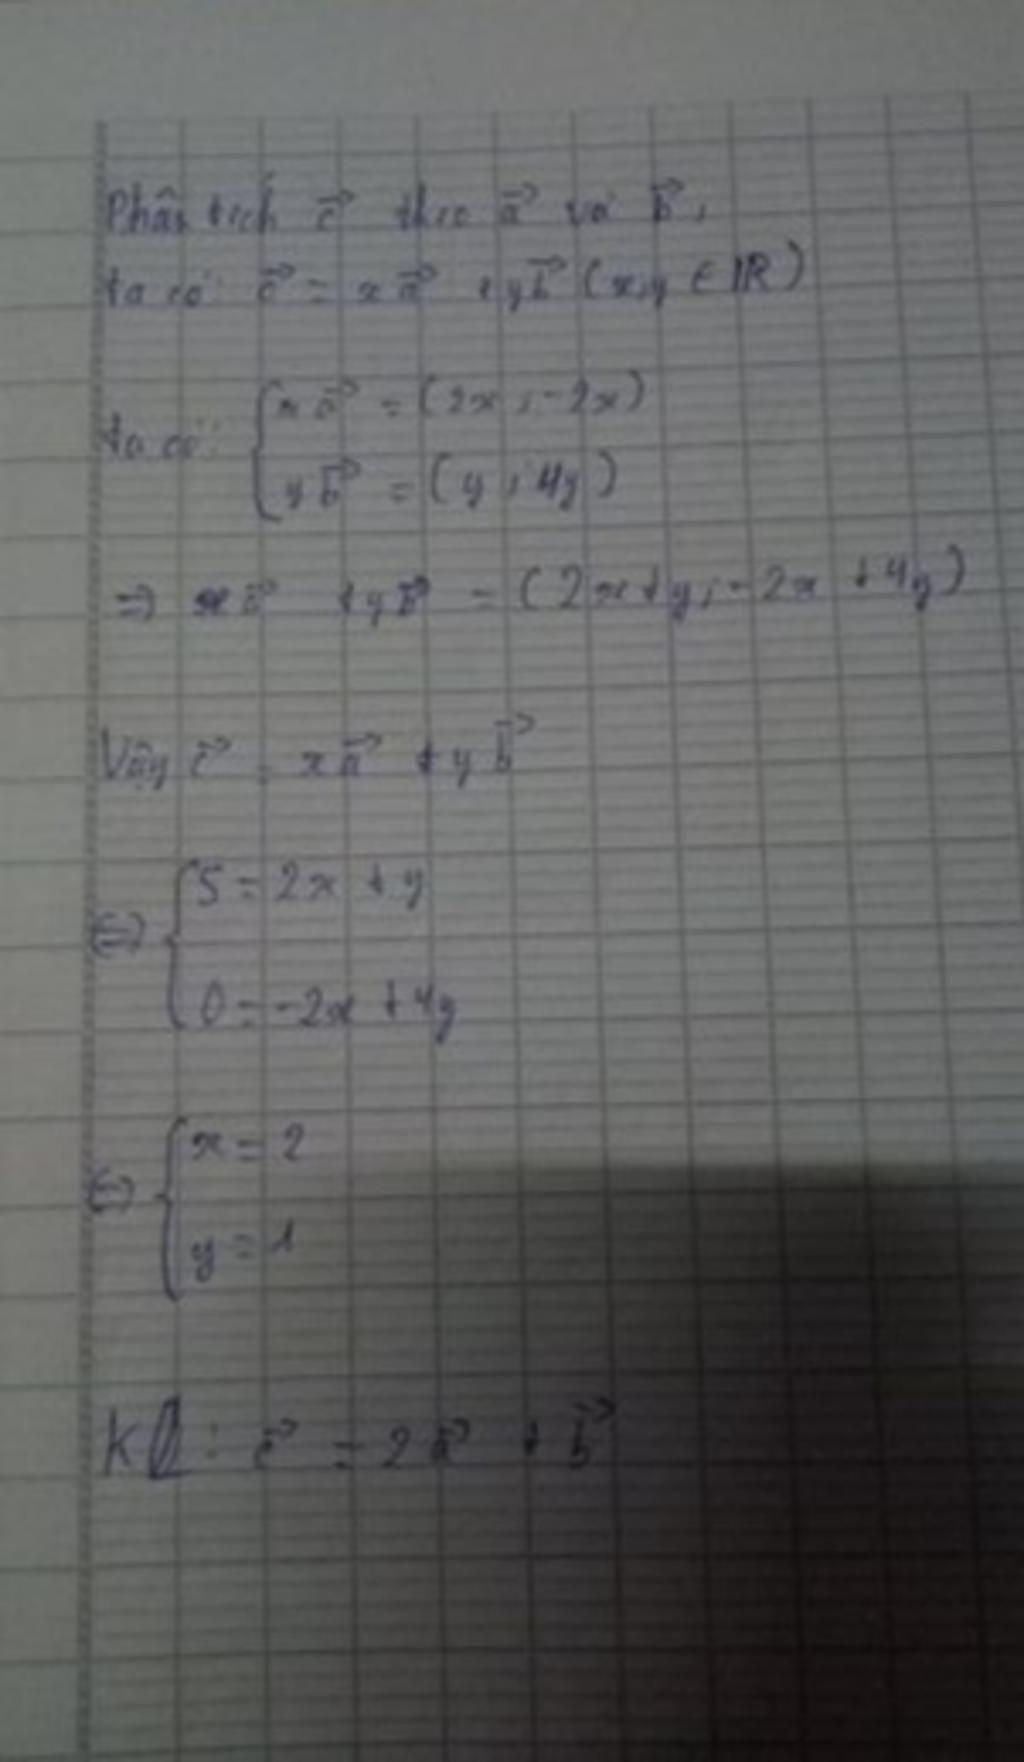 Phân tích c⃗ theo a⃗ và b⃗,
ta có: c⃗ = xa⃗ + yb⃗ (x,y ∈ ℝ)
ta có: { xa⃗ = (2x ; -2x)
yb⃗ = (y ; 4y)
=> xa⃗ + yb⃗ = (2x+y ; -2x + 4y)
Vậy c⃗ = xa⃗ + yb⃗
<=> { 5 = 2x + y
0 = -2x + 4y
<=> { x = 2
y = 1
KL: c⃗ = 2a⃗ + b⃗